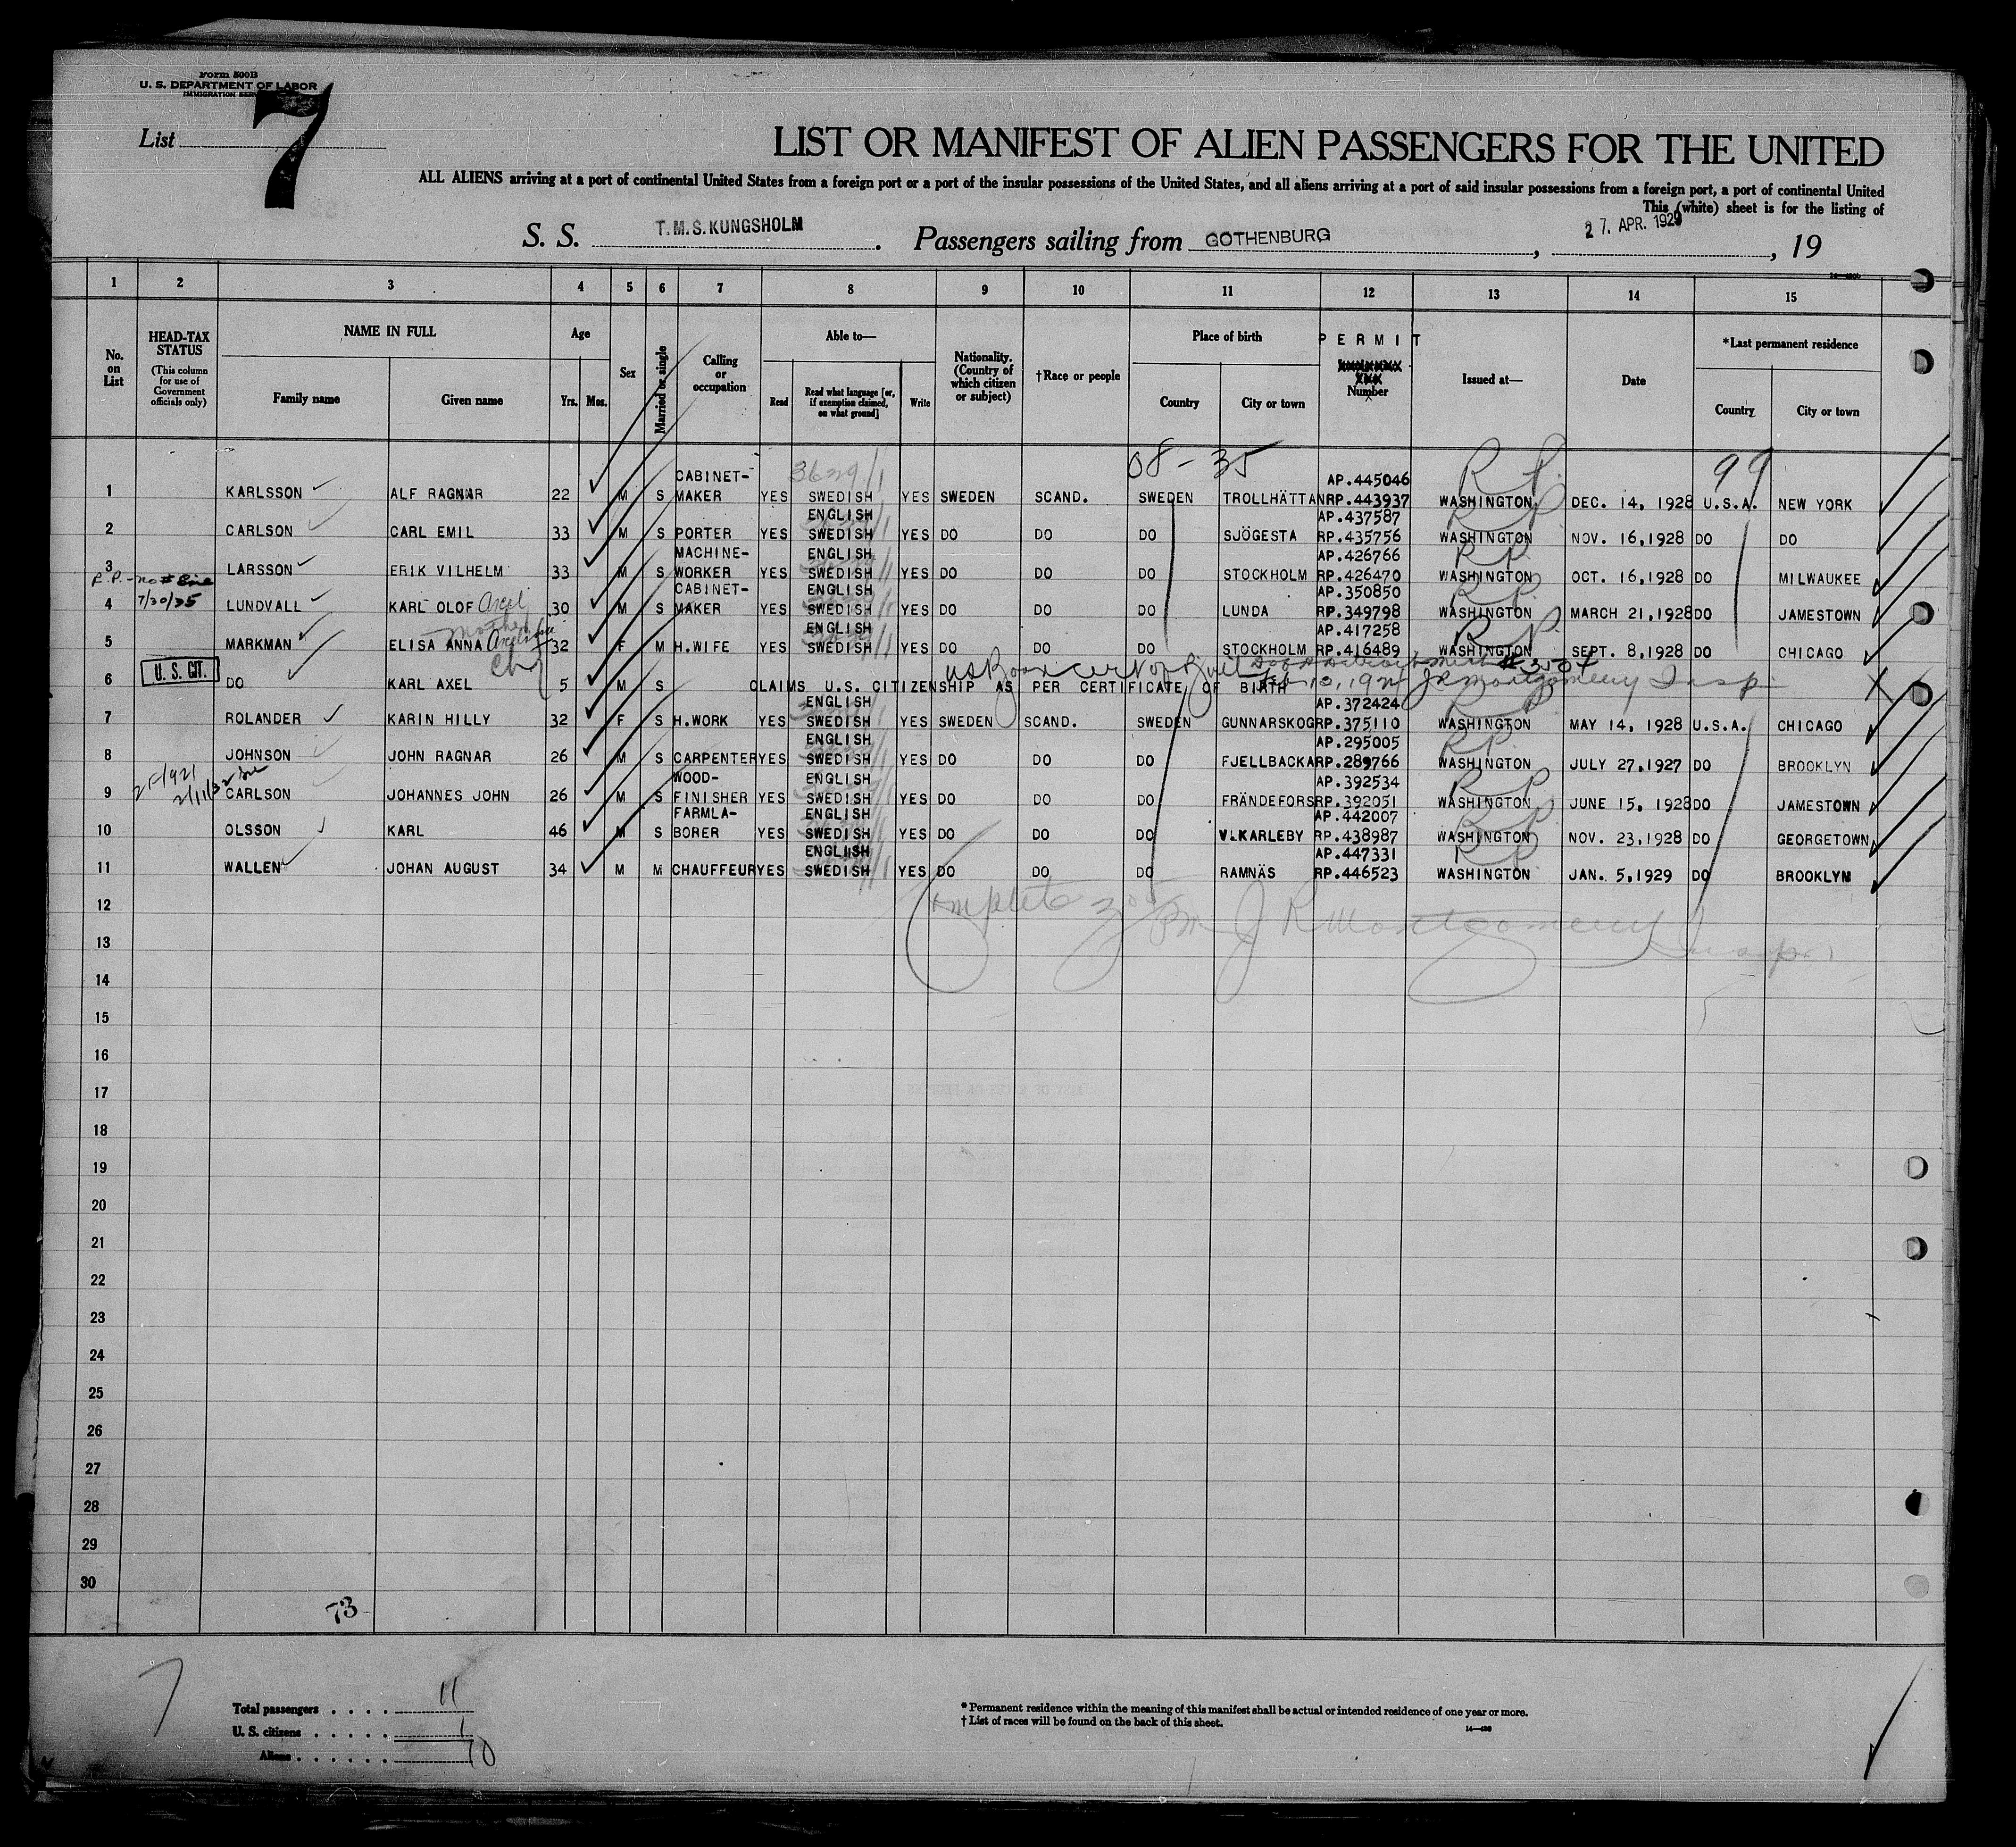 Form 500B
U. S. DEPARTMENT OF LABOR
IMMIGRATION
List 7
LIST OR MANIFEST OF ALIEN PASSENGERS FOR THE UNITED
ALL ALIENS arriving at a port of continental United States from a foreign port or a port of the insular possessions of the United States, and all aliens arriving at a port of said insular possessions from a foreign port, a port of continental United
This (white) sheet is for the listing of
S. S. T.M.S.KUNGSHOLM. Passengers sailing from GOTHENBURG, 27. APR. 1929, 19
1 2 3 4 5 6 7 8 9 10 11 12 13 14 15
No. on List
HEAD-TAX STATUS (This column for use of Government officials only)
NAME IN FULL
Family name Given name
Age
Yrs. Mos.
Sex
Married or single
Calling or occupation
Able to—
Read Read what language [or, if exemption claimed, on what ground] Write
Nationality. (Country of which citizen or subject)
†Race or people
Place of birth
Country City or town
PERMIT
Number
Issued at—
Date
*Last permanent residence
Country City or town
3629/1 08-35 R.P. 99
CABINET- AP.445046
1 KARLSSON ALF RAGNAR 22 M S MAKER YES SWEDISH YES SWEDEN SCAND. SWEDEN TROLLHÄTTAN RP.443937 WASHINGTON DEC. 14, 1928 U.S.A. NEW YORK
ENGLISH AP.437587
2 CARLSON CARL EMIL 33 M S PORTER YES SWEDISH YES DO DO DO SJÖGESTA RP.435756 WASHINGTON NOV. 16,1928 DO DO
MACHINE- ENGLISH AP.426766
3 LARSSON ERIK VILHELM 33 M S WORKER YES SWEDISH YES DO DO DO STOCKHOLM RP.426470 WASHINGTON OCT. 16,1928 DO MILWAUKEE
R.P.-no#
CABINET- ENGLISH AP.350850
4 7/30/35 LUNDVALL KARL OLOF Axel 30 M S MAKER YES SWEDISH YES DO DO DO LUNDA RP.349798 WASHINGTON MARCH 21,1928 DO JAMESTOWN
mother ENGLISH AP.417258
5 MARKMAN ELISA ANNA 32 F M H.WIFE YES SWEDISH YES DO DO DO STOCKHOLM RP.416489 WASHINGTON SEPT. 8,1928 DO CHICAGO
U. S. CIT.
US Born Cert of Birth
6 DO KARL AXEL 5 M S CLAIMS U.S. CITIZENSHIP AS PER CERTIFICATE OF BIRTH JR Montgomery Insp
ENGLISH AP.372424
7 ROLANDER KARIN HILLY 32 F S H.WORK YES SWEDISH YES SWEDEN SCAND. SWEDEN GUNNARSKOG RP.375110 WASHINGTON MAY 14, 1928 U.S.A. CHICAGO
ENGLISH AP.295005
8 JOHNSON JOHN RAGNAR 26 M S CARPENTER YES SWEDISH YES DO DO DO FJELLBACKA RP.289766 WASHINGTON JULY 27,1927 DO BROOKLYN
WOOD- ENGLISH AP.392534
9 CARLSON JOHANNES JOHN 26 M S FINISHER YES SWEDISH YES DO DO DO FRÄNDEFORS RP.392051 WASHINGTON JUNE 15, 1928 DO JAMESTOWN
FARMLA- ENGLISH AP.442007
10 OLSSON KARL 46 M S BORER YES SWEDISH YES DO DO DO V.KARLEBY RP.438987 WASHINGTON NOV. 23,1928 DO GEORGETOWN
ENGLISH AP.447331
11 WALLEN JOHAN AUGUST 34 M M CHAUFFEUR YES SWEDISH YES DO DO DO RAMNÄS RP.446523 WASHINGTON JAN. 5,1929 DO BROOKLYN
12 Complete 3 00 PM J R Montgomery Insp.
13
14
15
16
17
18
19
20
21
22
23
24
25
26
27
28
29
30
73
7
Total passengers . . . . 11
U. S. citizens . . . . . 1
Aliens . . . . . . 10
* Permanent residence within the meaning of this manifest shall be actual or intended residence of one year or more.
† List of races will be found on the back of this sheet.